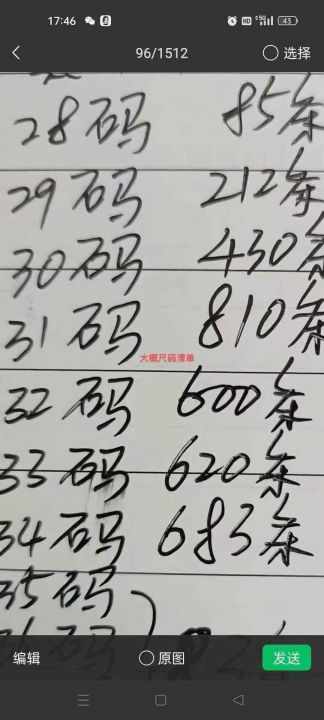 17:46
5G 43
96/1512
选择
28码 85条
29码 212条
30码 430条
31码 810条
大概尺码清单
32码 600条
33码 620条
34码 683条
35码
编辑
原图
发送